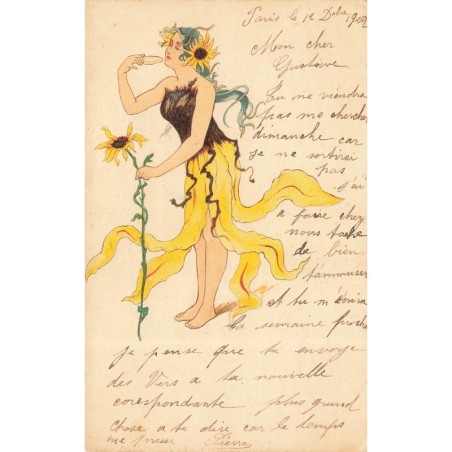 Paris le 12 Dbre 1902
Mon cher
Gustave
Tu ne viendra
pas me chercher
dimanche car
je ne sortirai
pas
j'ai
a faire chez
nous tache
de bien
t'ammuser
et tu m'écrira
la semaine proche
je pense que tu envoye
des Vers a ta nouvelle
corespondante plus grand
chose a te dire car le temps
me presse Pierre